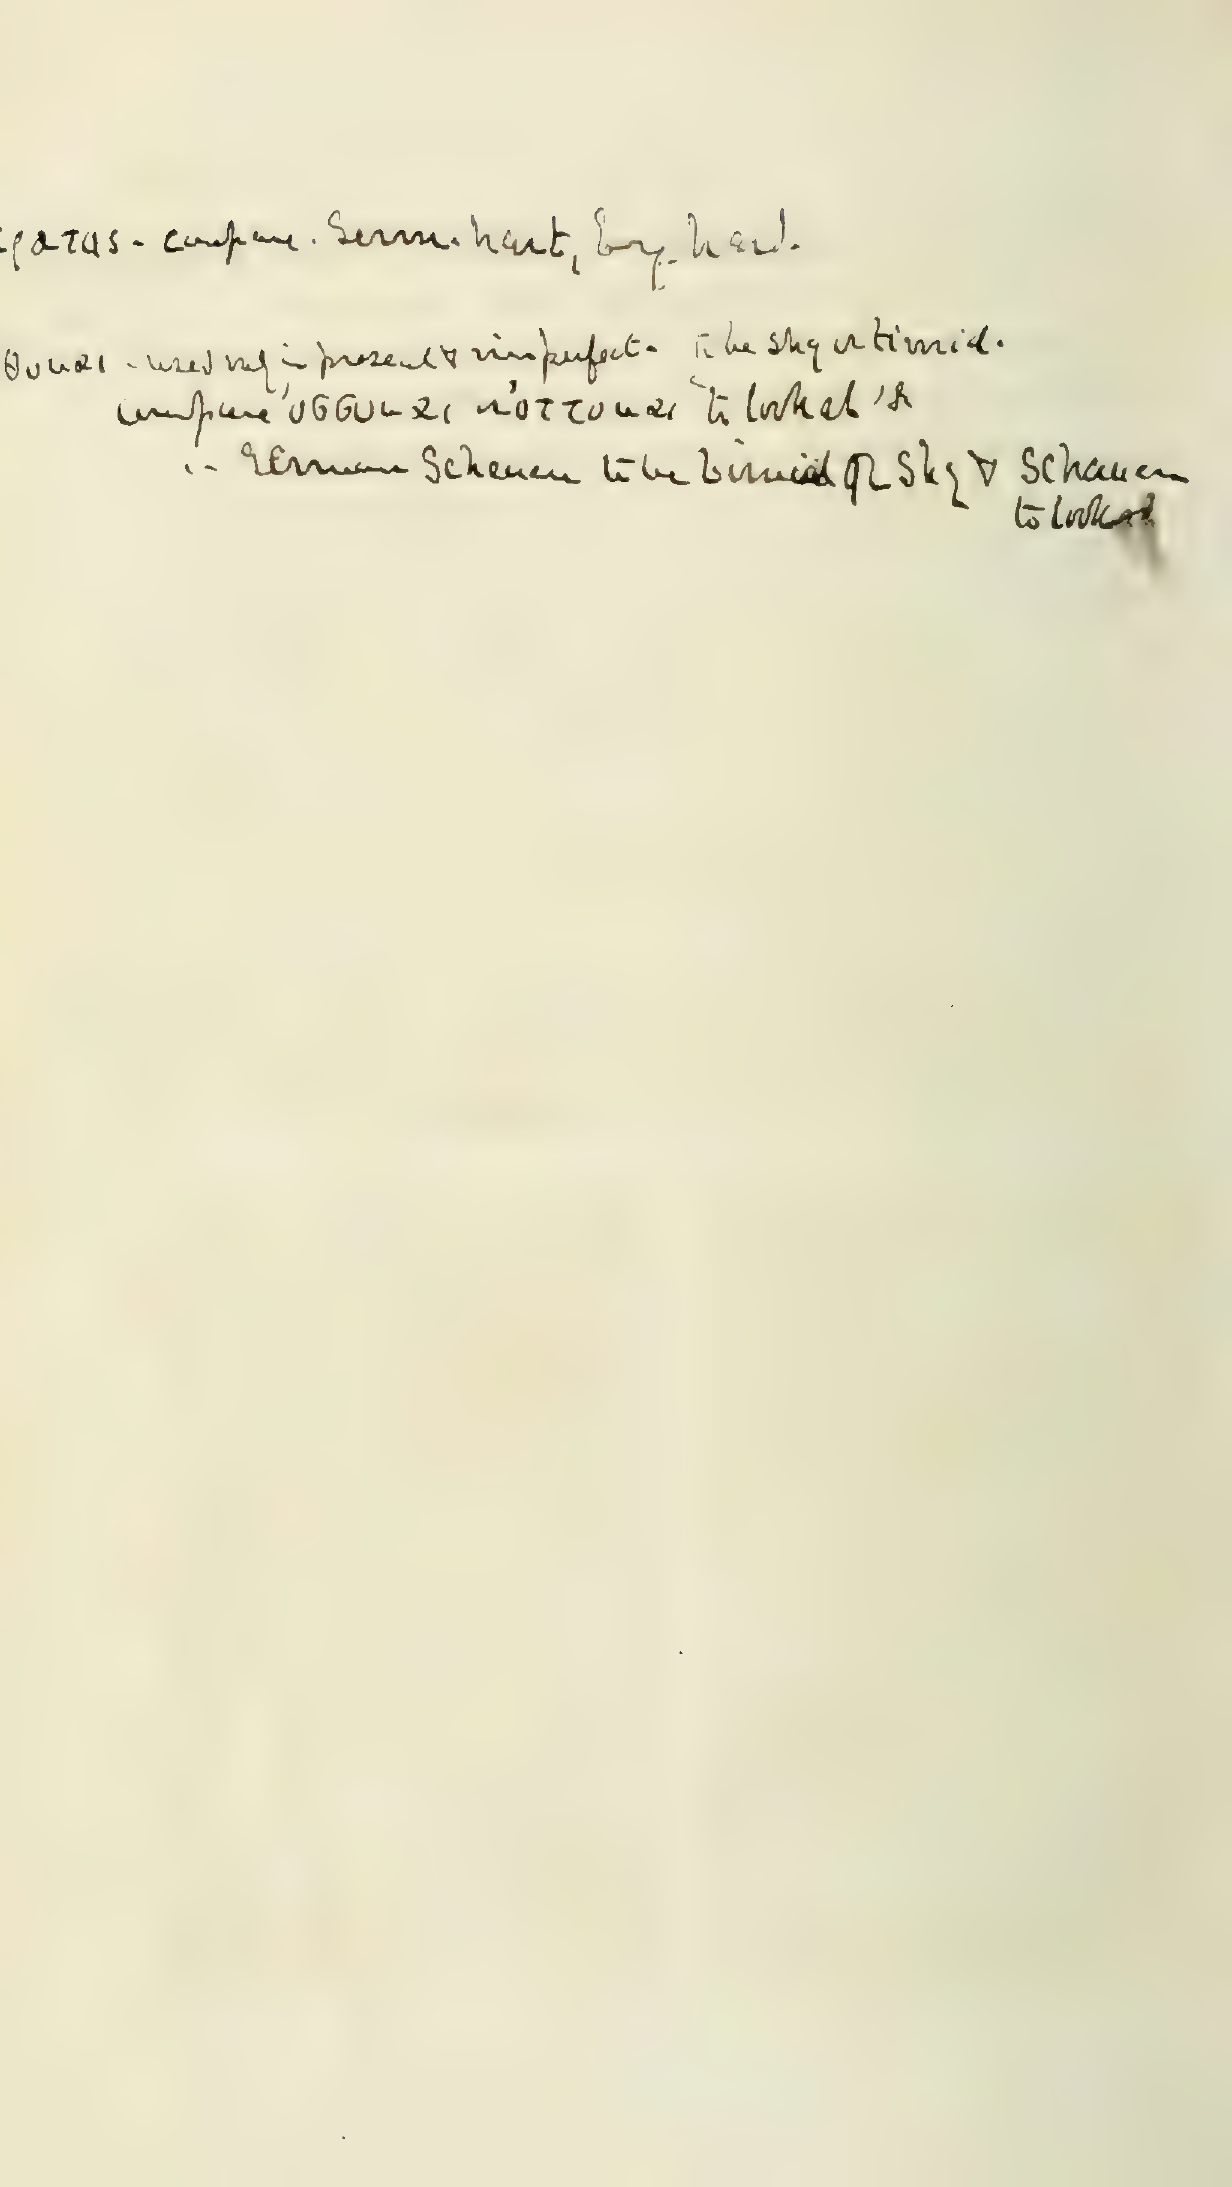 ρατυς - compare. Germ. hart, Eng. hard.
θομαι - used only in present & imperfect. To be shy or timid.
compare ὄσσομαι or ὄττομαι to look at
German Scheuen to be timid or Shy & Schauen
to look at